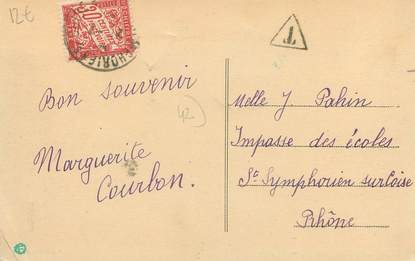 12€
30
T
Bon souvenir
42
Marguerite
Courbon.
Melle J Pahin
Impasse des écoles
St Symphorien sur Coise
Rhône